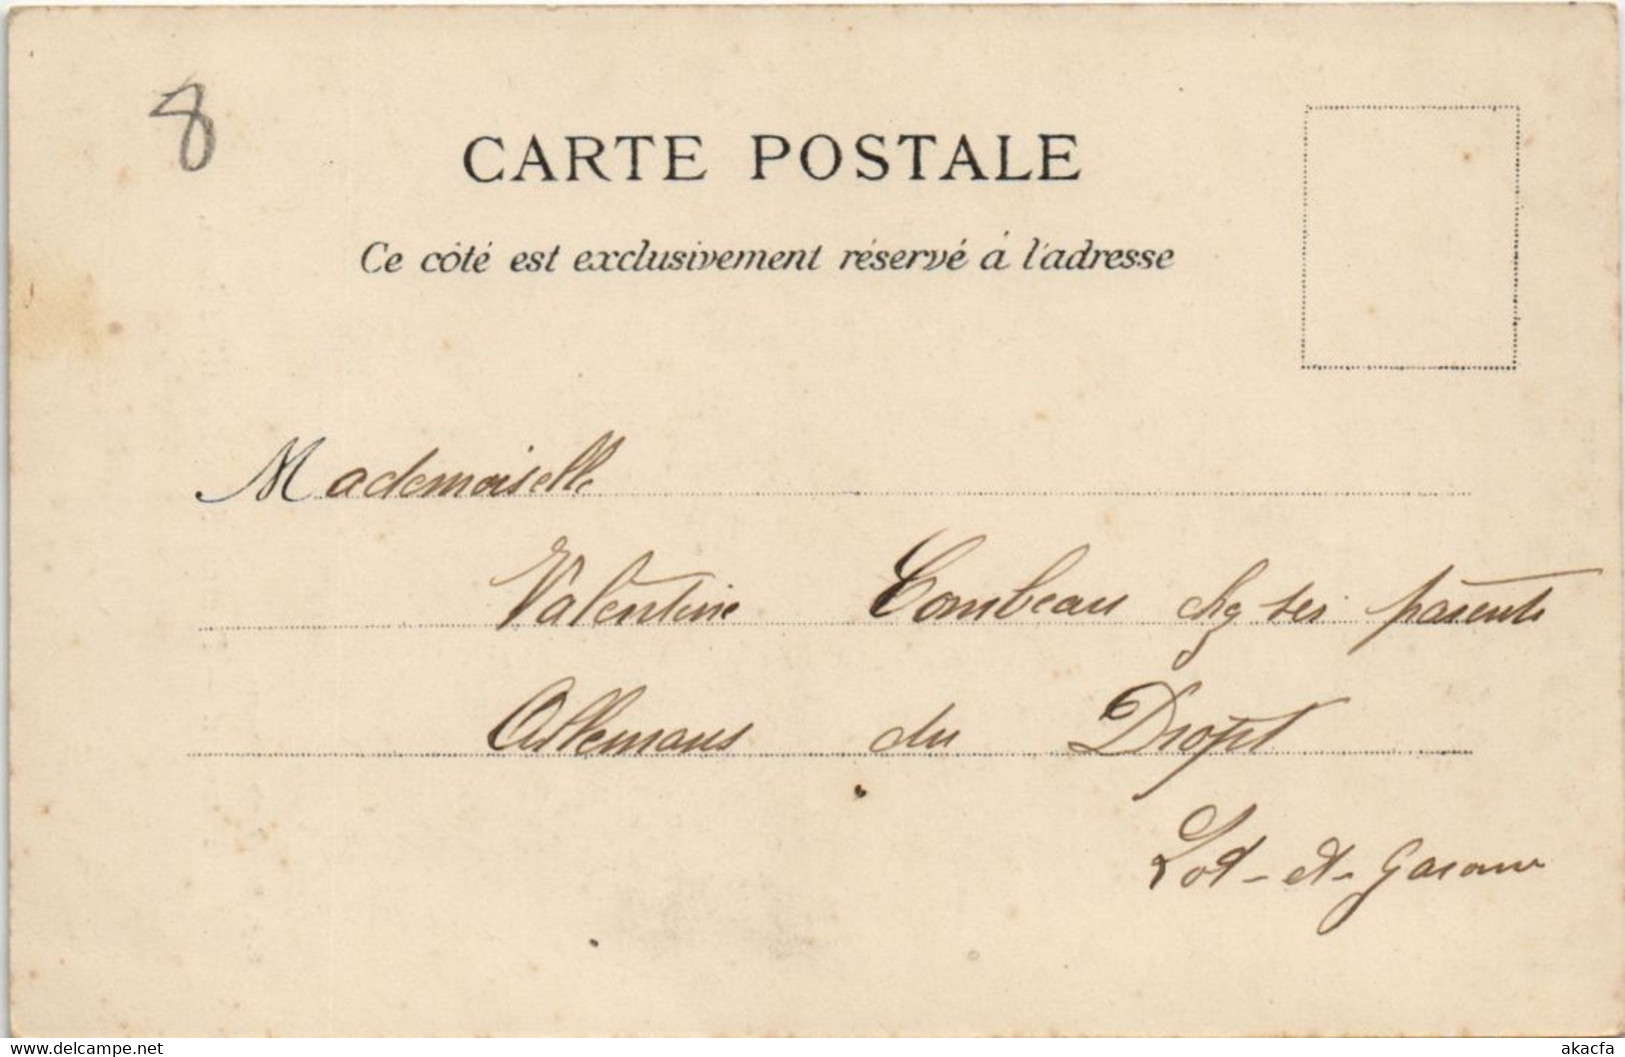 8
CARTE POSTALE
Ce côté est exclusivement réservé à l'adresse
Mademoiselle
Valentine Combeau chez ses parents
Allemans du Dropt
Lot-et-Garonne
delcampe.net
akacfa